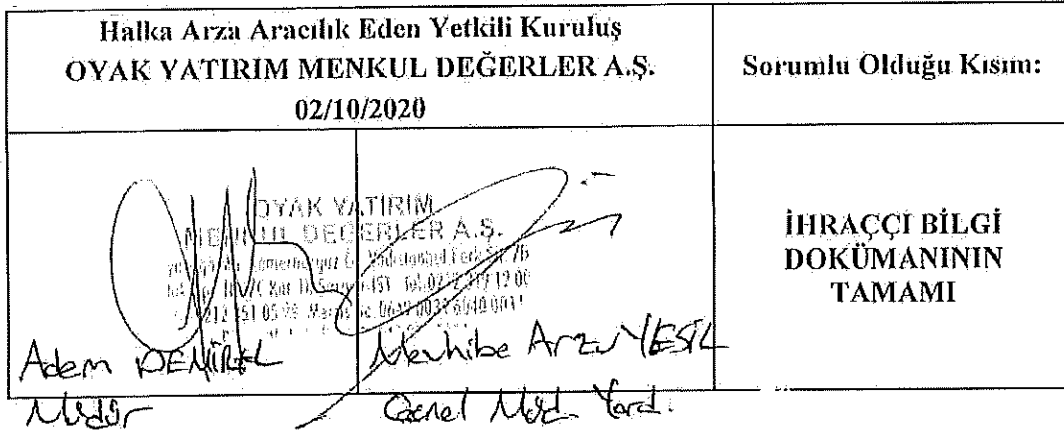 Halka Arza Aracılık Eden Yetkili Kuruluş
OYAK YATIRIM MENKUL DEĞERLER A.Ş.
02/10/2020
Sorumlu Olduğu Kısım:
OYAK YATIRIM
MENKUL DEĞERLER A.Ş.
Adem DEMİREL
Müdür
Mevhibe Arzu YEŞİL
Genel Müd. Yard.
İHRAÇÇI BİLGİ
DOKÜMANININ
TAMAMI